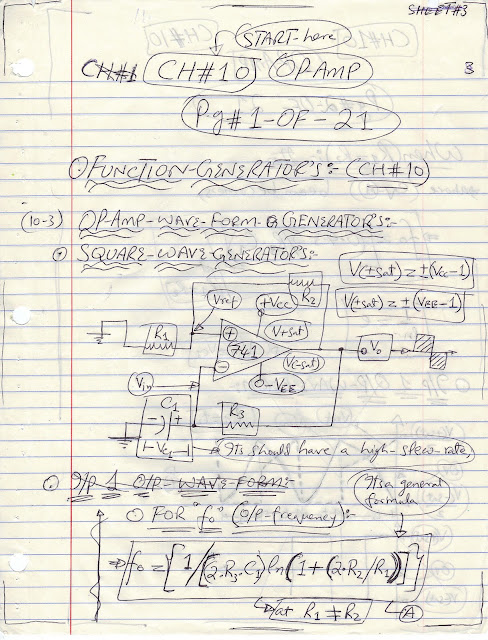 SHEET#3
START-here
CH#1 CH#10 OP-AMP 3
Pg#1-OF-21
FUNCTION-GENERATOR'S:- (CH#10)
(10-3) OP-AMP-WAVE-FORM-GENERATOR'S:-
SQUARE-WAVE-GENERATOR'S:-
V(±sat) = ±(Vcc-1)
V(±sat) = ±(VEE-1)
Vref +Vcc R2
R1 + 741 - V+sat V(-sat) Vo
Vin -VEE
C1 R3
- + Vc1 Its should have a high-slew-rate,
I/P & O/P-WAVE-FORM:-
Its a general
formula
FOR "fo" (O/P-frequency):-
fo = [1/{(2.R3.C1) ln(1+(2.R2/R1))}]
at R1 ≠ R2 A